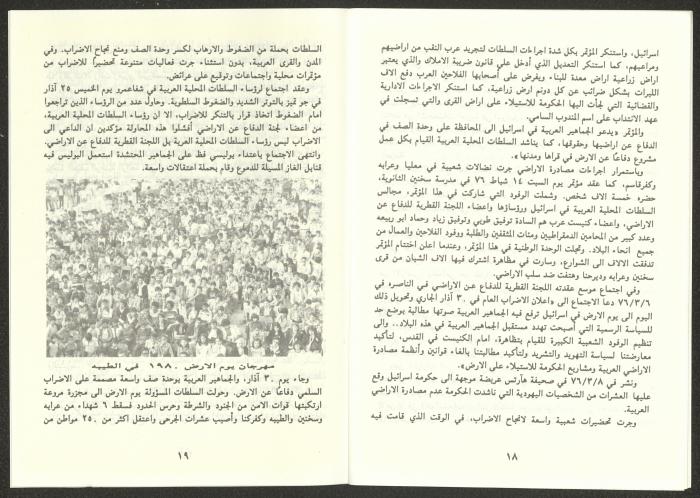 اسرائيل، واستنكر المؤتمر بكل شدة اجراءات السلطات لتجريد عرب النقب من اراضيهم
ومراعيهم، كما استنكر التعديل الذي أدخل على قانون ضريبة الاملاك والذي يعتبر
اراض زراعية اراض معدة للبناء ويفرض على أصحابها الفلاحين العرب دفع الاف
الليرات بشكل ضرائب عن كل دونم ارض زراعية، كما استنكر الاجراءات الادارية
والقضائية التي لجأت اليها الحكومة للاستيلاء على اراض القرى والتي تسجلت في
عهد الانتداب على اسم المندوب السامي.
والمؤتمر «يدعو الجماهير العربية في اسرائيل الى المحافظة على وحدة الصف في
الدفاع عن اراضيها وحقوقها، كما يناشد السلطات المحلية العربية القيام بكل عمل
مشروع دفاعًا عن الارض في قراها ومدنها».
وباستمرار اجراءات مصادرة الاراضي جرت نضالات شعبية في معليا وعرابه
وكفرقاسم، كما عقد مؤتمر يوم السبت ١٤ شباط ٧٦ في مدرسة سخنين الثانوية،
حضره خمسة الاف شخص. وشملت الوفود التي شاركت في هذا المؤتمر، مجالس
السلطات المحلية العربية في اسرائيل ورؤساؤها واعضاء اللجنة القطرية للدفاع عن
الاراضي، واعضاء كنيست عرب هم السادة توفيق طوبي وتوفيق زياد وحماد ابو ربيعه
وعدد كبير من المحامين الدمقراطيين ومئات المثقفين والطلبة ووفود الفلاحين والعمال من
جميع انحاء البلاد. وتجلت الوحدة الوطنية في هذا المؤتمر، وعندما اعلن اختتام المؤتمر
تدفقت الالاف الى الشوارع، وسارت في مظاهرة اشترك فيها الاف الشبان من قرى
سخنين وعرابه وديرحنا وهتفت ضد سلب الاراضي.
وفي اجتماع موسع عقدته اللجنة القطرية للدفاع عن الاراضي في الناصره في
٧٦/٣/٦ دعا الاجتماع الى «اعلان الاضراب العام في ٣٠ آذار الجاري وتحويل ذلك
اليوم الى يوم الارض في اسرائيل ترفع فيه الجماهير العربية صوتها مطالبة بوضع حد
للسياسة الرسمية التي أصبحت تهدد مستقبل الجماهير العربية في هذه البلاد... والى
تنظيم الوفود الشعبية الكبيرة للقيام بتظاهرة، امام الكنيست في القدس، لتأكيد
معارضتنا لسياسة التهويد والتشريد ولتأكيد مطالبتنا بالغاء قوانين وأنظمة مصادرة
الاراضي العربية ومشاريع الحكومة للاستيلاء على الارض».
ونشر في ٧٦/٣/٨ في صحيفة هآرتس عريضة موجهة الى حكومة اسرائيل وقع
عليها العشرات من الشخصيات اليهودية التي ناشدت الحكومة عدم مصادرة الاراضي
العربية.
وجرت تحضيرات شعبية واسعة لانجاح الاضراب، في الوقت الذي قامت فيه
١٨
السلطات بحملة من الضغوط والارهاب لكسر وحدة الصف ومنع نجاح الاضراب. وفي
المدن والقرى العربية، بدون استثناء جرت فعاليات متنوعة تحضيرًا للاضراب من
مؤتمرات محلية واجتماعات وتوقيع على عرائض.
وعقد اجتماع لرؤساء السلطات المحلية العربية في شفاعمرو يوم الخميس ٢٥ آذار
في جو تميز بالتوتر الشديد والضغوط السلطوية. وحاول عدد من الرؤساء الذين تراجعوا
امام الضغوط اتخاذ قرار بالتنكر للاضراب، الا ان رؤساء السلطات المحلية العربية،
من اعضاء لجنة الدفاع عن الاراضي أفشلوا هذه المحاولة مؤكدين ان الداعي الى
الاضراب ليس رؤساء السلطات المحلية العربية بل اللجنة القطرية للدفاع عن الاراضي.
وانتهى الاجتماع باعتداء بوليسي فظ على الجماهير المحتشدة استعمل البوليس فيه
قنابل الغاز المسيلة للدموع وقام بحملة اعتقالات واسعة.
مهرجان يوم الارض ١٩٨٠ في الطيبه
وجاء يوم ٣٠ آذار، والجماهير العربية بوحدة صف واسعة مصممة على الاضراب
السلمي دفاعًا عن الارض. وحولت السلطات المسؤولة يوم الارض الى مجزرة مروعة
ارتكبتها قوات الامن من الجنود والشرطة وحرس الحدود فسقط ٦ شهداء من عرابه
وسخنين والطيبه وكفركنا وأصيب عشرات الجرحى واعتقل اكثر من ٢٥٠ مواطن من
١٩